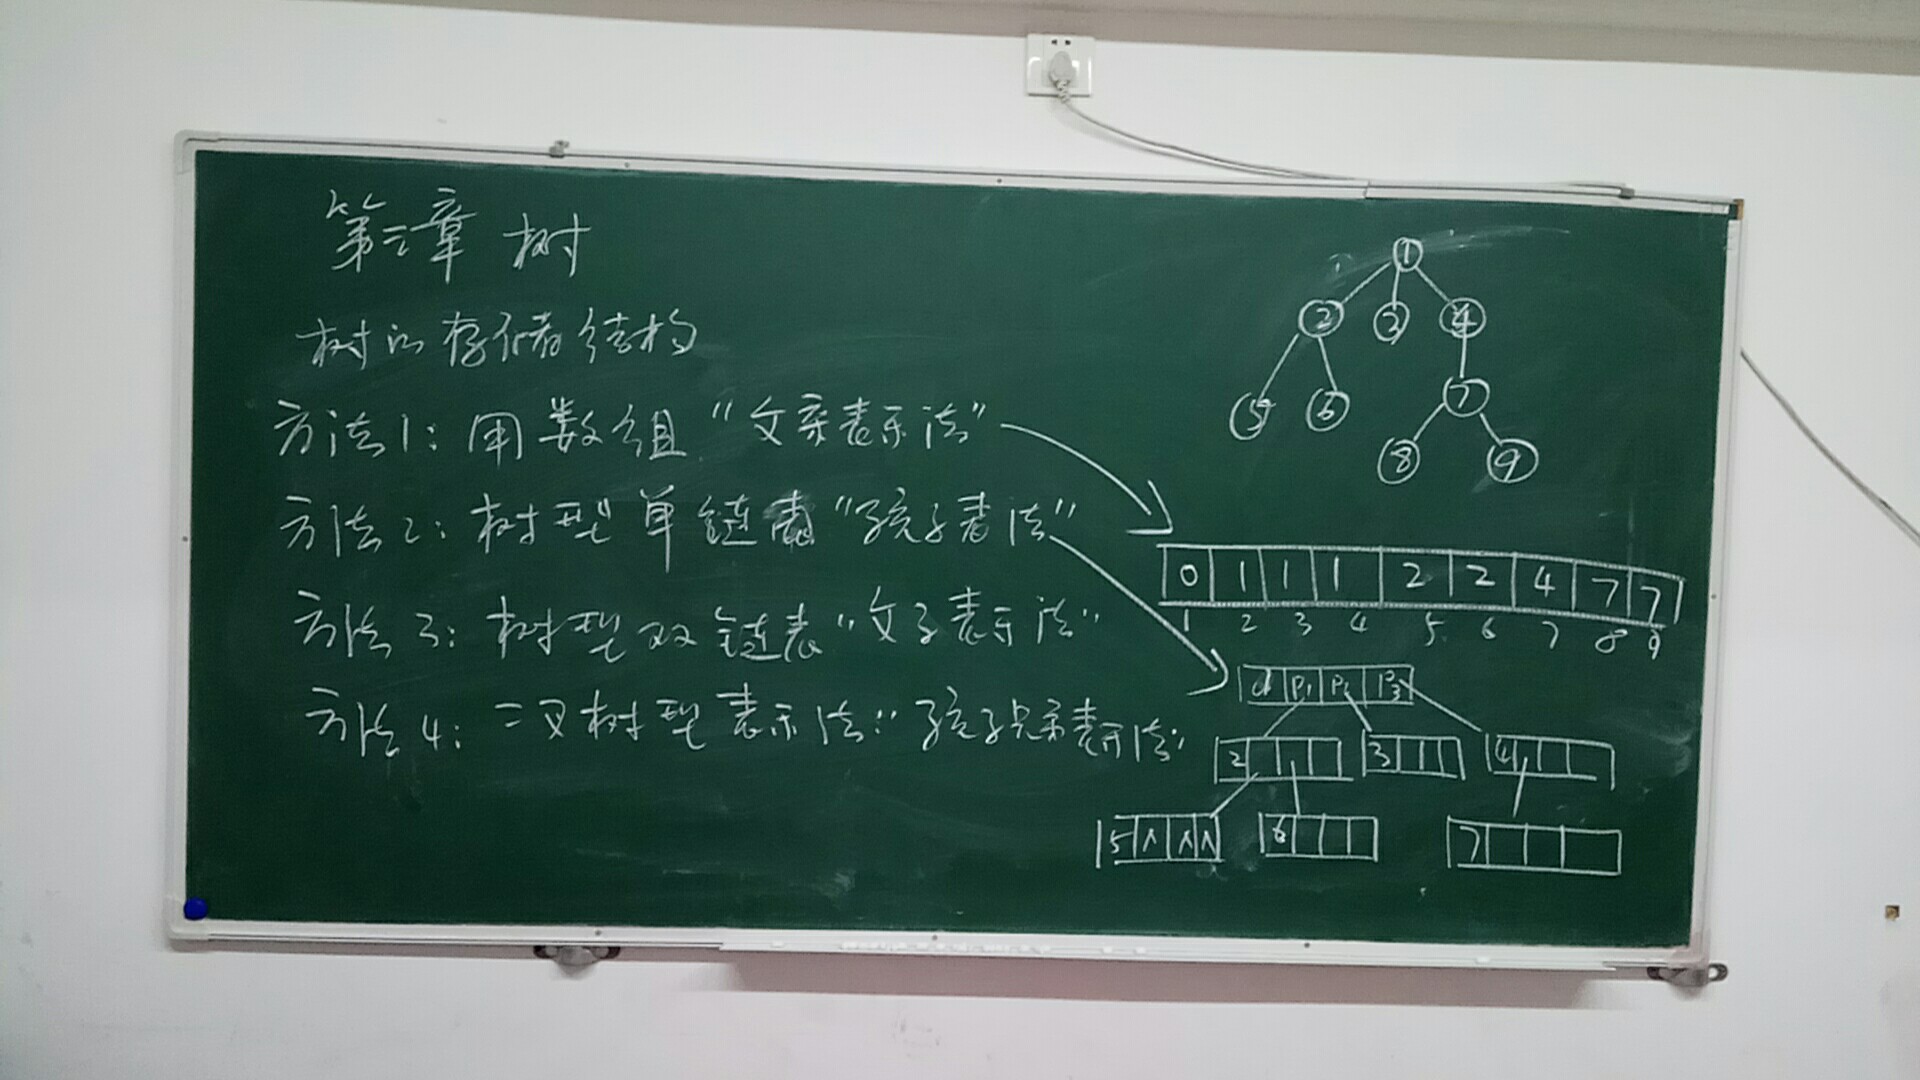 第三章 树
树的存储结构
方法1: 用数组 "父亲表示法"
方法2: 树型单链表 "孩子表法"
方法3: 树型双链表 "父子表示法"
方法4: 二叉树型表示法: "孩子兄弟表示法"
1
2 3 4
5 6 7
8 9
0 1 1 1 2 2 4 7 7
1 2 3 4 5 6 7 8 9
d P1 P2 P3
2 3 4
5 ∧ ∧ ∧ 6 7